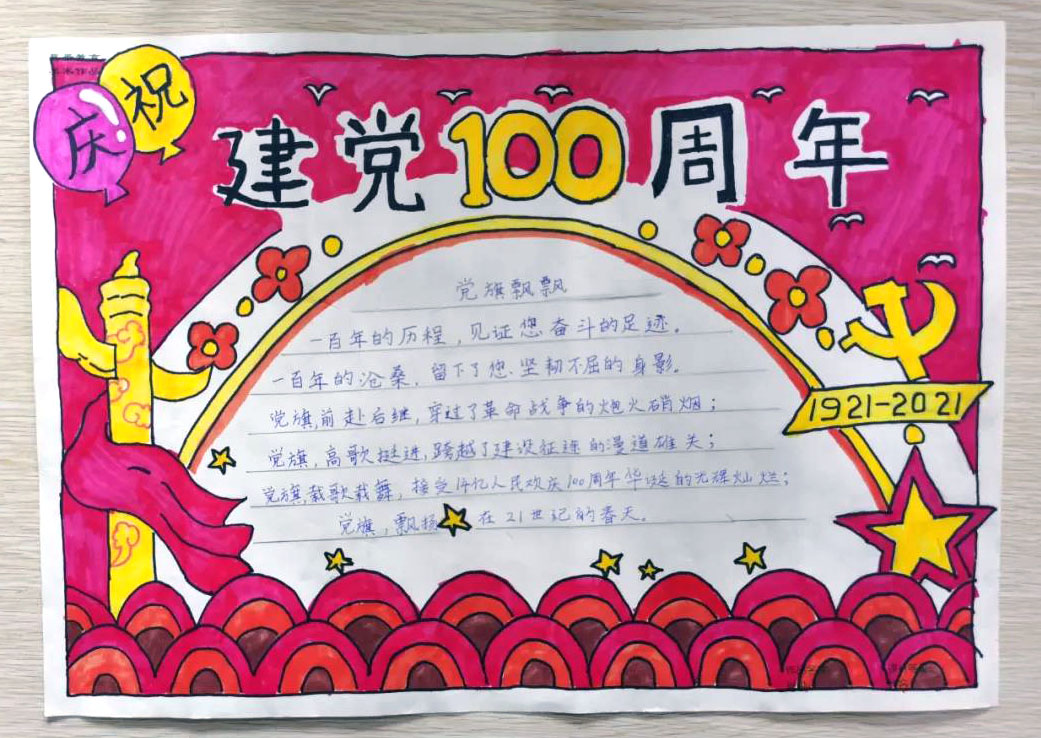 庆祝
建党100周年
党旗飘飘
一百年的历程，见证您奋斗的足迹。
一百年的沧桑，留下了您、坚韧不屈的身影。
党旗，前赴后继，穿过了革命战争的炮火硝烟；
党旗，高歌挺进，跨越了建设征途的漫道雄关；
党旗，载歌载舞，接受14亿人民欢庆100周年华诞的光辉灿烂；
党旗，飘扬在21世纪的春天。
1921-2021